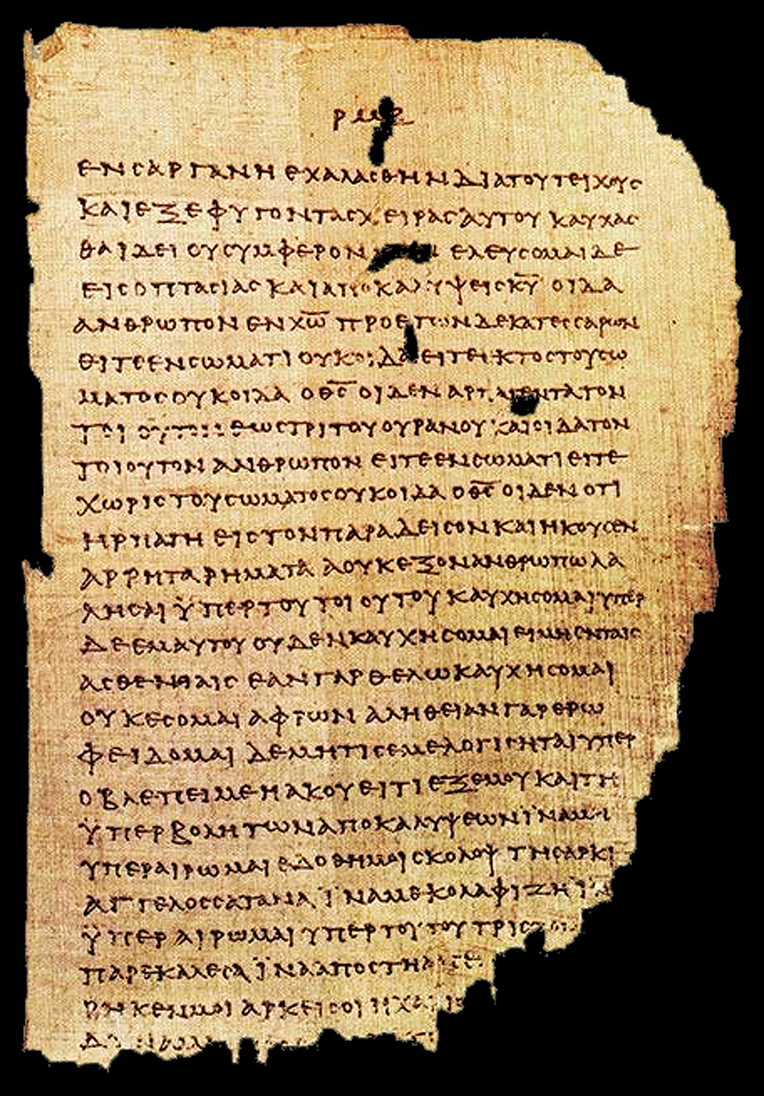 ΕΝ ϹΑΡΓΑΝΗ ΕΧΑΛΑϹΘΗΝ ΔΙΑ ΤΟΥ ΤΕΙΧΟΥϹ
ΚΑΙ ΕΞΕΦΥΓΟΝ ΤΑϹ ΧΕΙΡΑϹ ΑΥΤΟΥ ΚΑΥΧΑϹ
ΘΑΙ ΔΕΙ ΟΥ ϹΥΜΦΕΡΟΝ ΕΛΕΥϹΟΜΑΙ ΔΕ
ΕΙϹ ΟΠΤΑϹΙΑϹ ΚΑΙ ΑΠΟΚΑΛΥΨΕΙϹ Κ̅Υ̅ ΟΙΔΑ
ΑΝΘΡΩΠΟΝ ΕΝ Χ̅Ω̅ ΠΡΟ ΕΤΩΝ ΔΕΚΑΤΕϹϹΑΡΩΝ
ΕΙΤΕ ΕΝ ϹΩΜΑΤΙ ΟΥΚ ΟΙΔΑ ΕΙΤΕ ΕΚΤΟϹ ΤΟΥ ϹΩ
ΜΑΤΟϹ ΟΥΚ ΟΙΔΑ Ο Θ̅Ϲ̅ ΟΙΔΕΝ ΑΡΠΑΓΕΝΤΑ ΤΟΝ
ΤΟΙΟΥΤΟΝ ΕΩϹ ΤΡΙΤΟΥ ΟΥΡΑΝΟΥ ΚΑΙ ΟΙΔΑ ΤΟΝ
ΤΟΙΟΥΤΟΝ ΑΝΘΡΩΠΟΝ ΕΙΤΕ ΕΝ ϹΩΜΑΤΙ ΕΙΤΕ
ΧΩΡΙϹ ΤΟΥ ϹΩΜΑΤΟϹ ΟΥΚ ΟΙΔΑ Ο Θ̅Ϲ̅ ΟΙΔΕΝ ΟΤΙ
ΗΡΠΑΓΗ ΕΙϹ ΤΟΝ ΠΑΡΑΔΕΙϹΟΝ ΚΑΙ ΗΚΟΥϹΕΝ
ΑΡΡΗΤΑ ΡΗΜΑΤΑ Α ΟΥΚ ΕΞΟΝ ΑΝΘΡΩΠΩ ΛΑ
ΛΗϹΑΙ ΫΠΕΡ ΤΟΥ ΤΟΙΟΥΤΟΥ ΚΑΥΧΗϹΟΜΑΙ ΥΠΕΡ
ΔΕ ΕΜΑΥΤΟΥ ΟΥΔΕΝ ΚΑΥΧΗϹΟΜΑΙ ΕΙ ΜΗ ΕΝ ΤΑΙϹ
ΑϹΘΕΝΙΑΙϹ ΕΑΝ ΓΑΡ ΘΕΛΩ ΚΑΥΧΗϹΟΜΑΙ
ΟΥΚ ΕϹΟΜΑΙ ΑΦΡΩΝ ΑΛΗΘΕΙΑΝ ΓΑΡ ΕΡΩ
ΦΕΙΔΟΜΑΙ ΔΕ ΜΗ ΤΙϹ ΕΜΕ ΛΟΓΙϹΗΤΑΙ ΥΠΕΡ
Ο ΒΛΕΠΕΙ ΜΕ Η ΑΚΟΥΕΙ ΤΙ ΕΞ ΕΜΟΥ ΚΑΙ ΤΗ
ΫΠΕΡΒΟΛΗ ΤΩΝ ΑΠΟΚΑΛΥΨΕΩΝ ΪΝΑ ΜΗ
ΥΠΕΡΑΙΡΩΜΑΙ ΕΔΟΘΗ ΜΟΙ ϹΚΟΛΟΨ ΤΗ ϹΑΡΚΙ
ΑΓΓΕΛΟϹ ϹΑΤΑΝΑ ΪΝΑ ΜΕ ΚΟΛΑΦΙΖΗ ΪΝΑ
ΫΠΕΡΑΙΡΩΜΑΙ ΥΠΕΡ ΤΟΥΤΟΥ ΤΡΙϹ
ΠΑΡΕΚΑΛΕϹΑ ΪΝΑ ΑΠΟϹΤΗ
ΡΗΚΕΝ ΜΟΙ ΑΡΚΕΙ ϹΟΙ Η ΧΑΡΙϹ